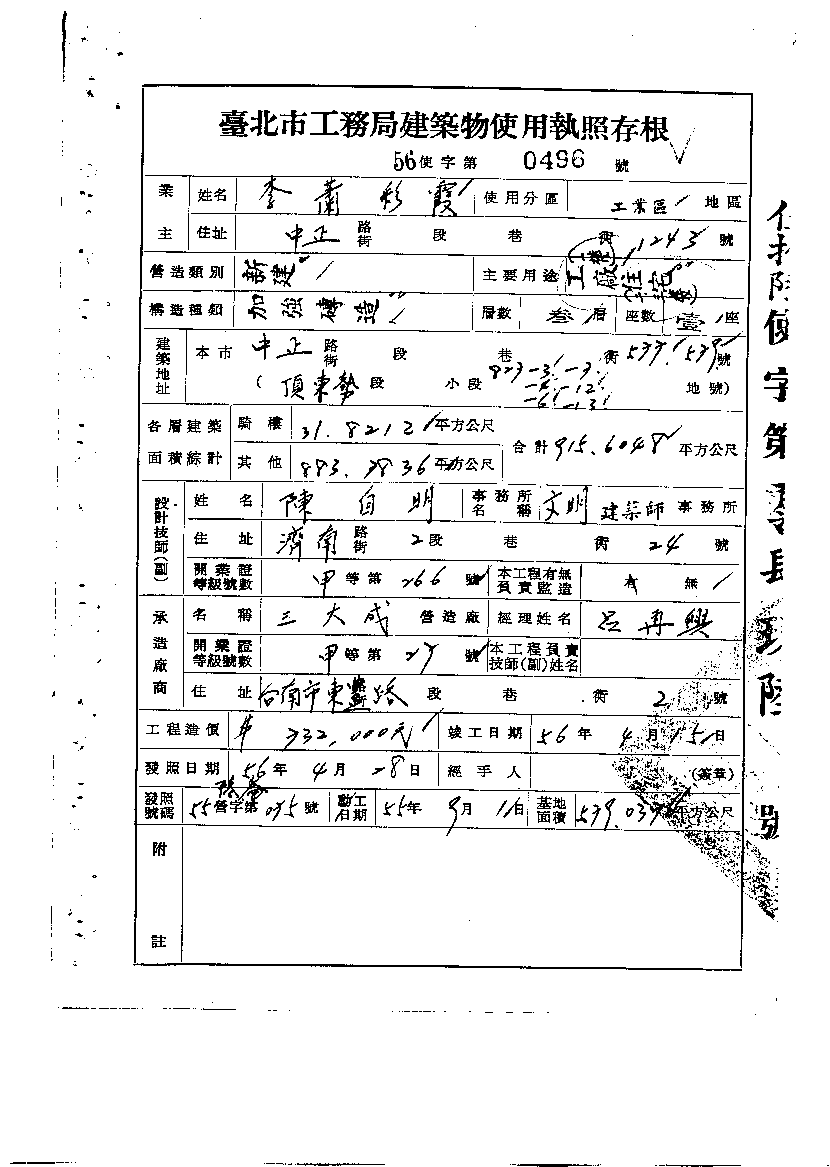 臺北市工務局建築物使用執照存根
56使字第 0496 號
業主 姓名 李蕭彩霞 使用分區 工業區 地區
住址 中正 路街 段 巷 衖 1243 號
營造類別 新建 主要用途 工廠 住宅
構造種類 加強磚造 層數 叁層 座數 壹座
建築地址 本市 中正 路街 段 巷 衖 537. 539 號
(頂東勢段 小段 823-3. 地號)
各層建築面積綜計 騎樓 31.8212 平方公尺 合計 915.6048 平方公尺
其他 883.7836 平方公尺
設計技師(副) 姓名 陳自明 事務所名稱 文明建築師事務所
住址 濟南 路街 2段 巷 衖 24 號
開業證等級號數 甲等第 266 號 本工程有無負責監造 有 無
承造廠商 名稱 三大成 營造廠 經理姓名 呂再興
開業證等級號數 甲等第 27 號 本工程負責技師(副)姓名
住址 台南市東豐路 段 巷 衖 2 號
工程造價 732,000元 竣工日期 56年 4月 15日
發照日期 56年 4月 28日 經手人 (簽章)
發照號碼 55營字第 號 動工日期 55年 9月 1日 基地面積 平方公尺
附註